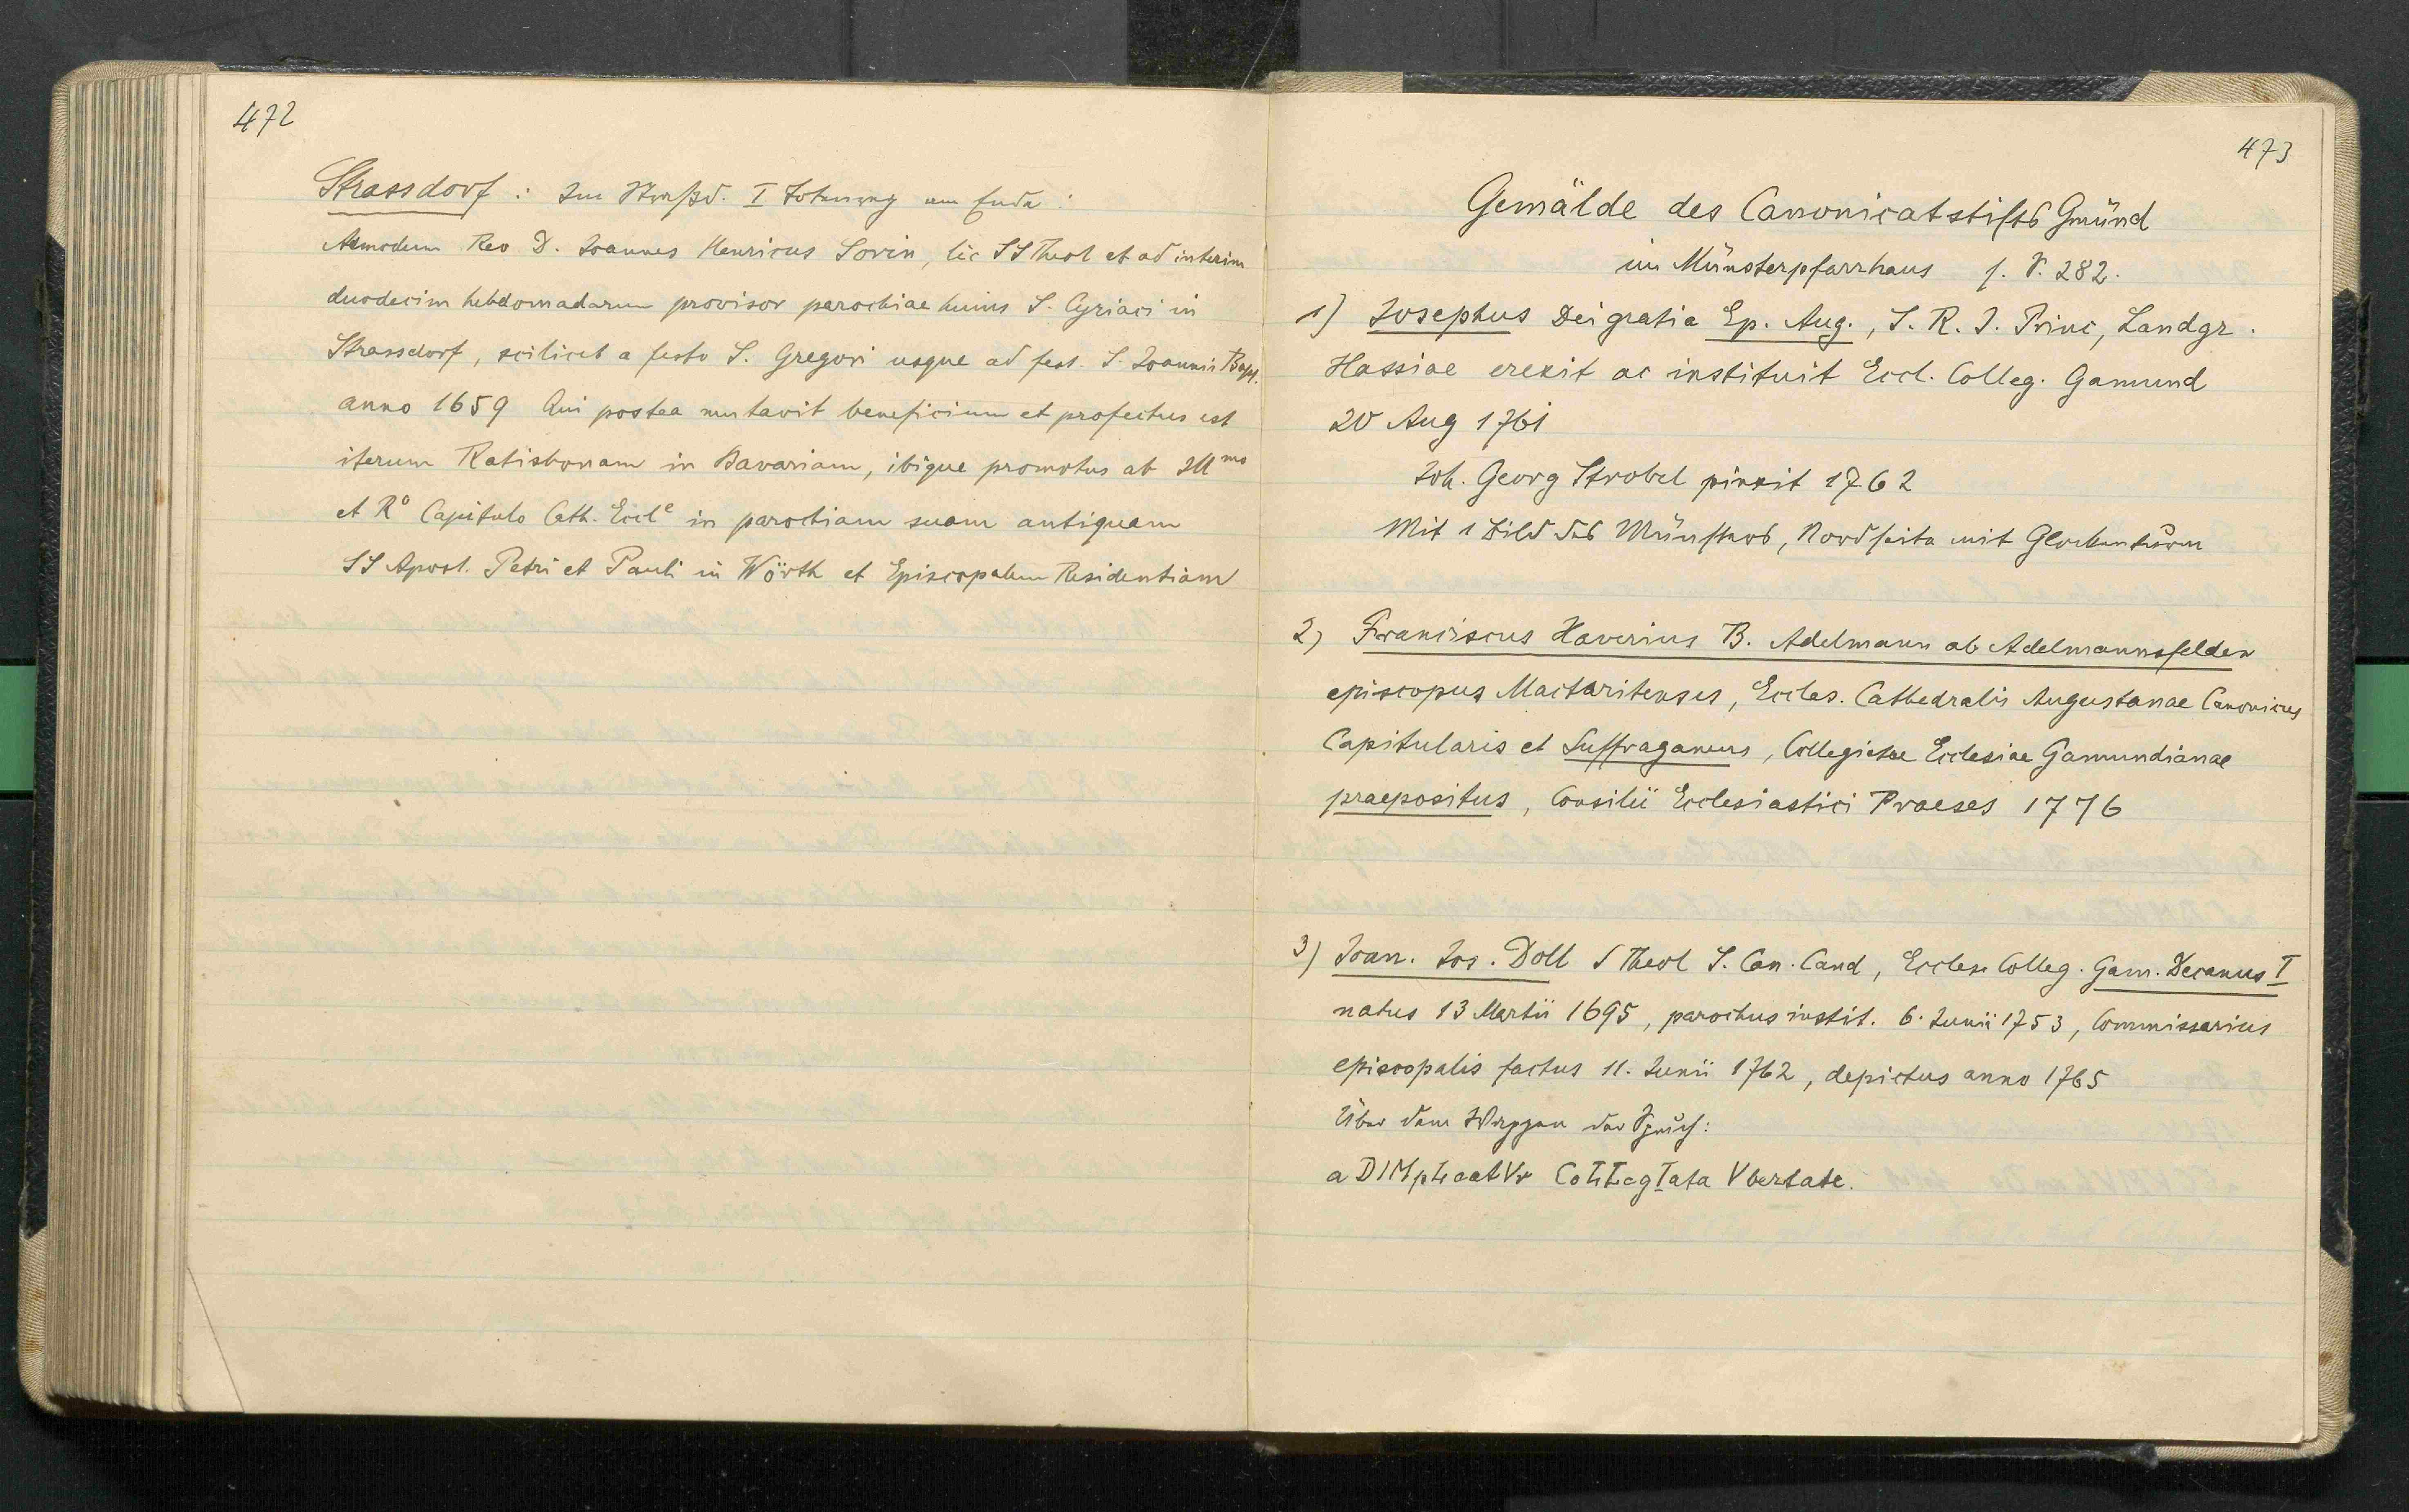 472
Strassdorf : Im Straßd. I Totenreg am Ende :
Admodum Rev D. Joannes Henricus Sorin, lic SS Theol et ad interim
duodecim hebdomadarum provisor parochiae huius S. Cyriaci in
Strassdorf, scilicet a festo S. Gregori usque ad fest. S. Joannis Bapt.
anno 1659 Qui postea mutavit beneficium et profectus est
iterum Ratisbonam in Bavariam, ibique promotus ab Illmo
et Ro Capitulo Cath. Eccle in parochiam suam antiquam
SS Apost. Petri et Pauli in Wörth et Episcopalem Residentiam
473
Gemälde des Canonicatstifts Gmünd
im Münsterpfarrhaus s. S. 282.
1) Josephus Dei gratia Ep. Aug., S. R. I. Princ, Landgr.
Hassiae erexit ac instituit Eccl. Colleg. Gamund
20 Aug 1761
Joh. Georg Strobel pinxit 1762
Mit 1 Bild des Münsters, Nordseite mit Glockenturm
2) Franciscus Xaverius B. Adelmann ab Adelmannsfelden
episcopus Mactaritensis, Eccles. Cathedralis Augustanae Canonicus
Capitularis et Suffraganeus, Collegiatae Ecclesiae Gamundianae
praepositus, Consilii Ecclesiastici Praeses 1776
3) Joan. Jos. Doll S Theol S. Can. Cand, Eccles. Colleg. Gam. Decanus I
natus 13 Martii 1695, parochus instit. 6. Junii 1753, Commissarius
episcopalis factus 11. Junii 1762, depictus anno 1765
Über dem Wappen der Spruch:
aDIMpLeatVr CoLLegIata Vbertate.